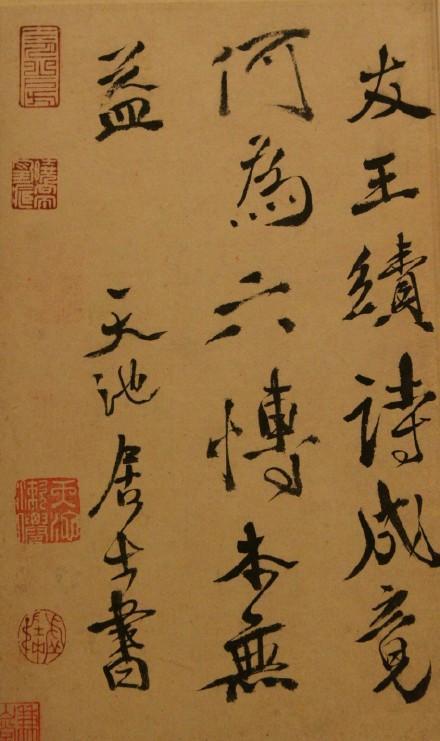 友王績詩成竟
何為六愽本無
益 天池居士書